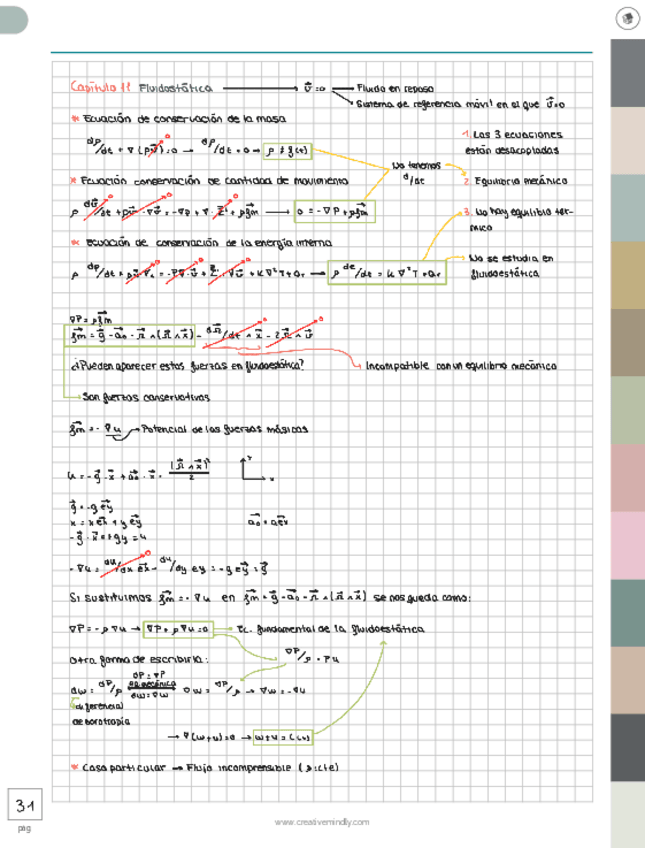 Capítulo 11 Fluidostática → v⃗ = 0 → Fluido en reposo
→ Sistema de referencia móvil en el que v⃗=0
* Ecuación de conservación de la masa
dρ/dt + ∇(ρv⃗) = 0 → dρ/dt = 0 → ρ ≠ f(t)
1. Las 3 ecuaciones
están desacopladas
No tenemos
d/dt
* Ecuación conservación de cantidad de movimiento
2. Equilibrio mecánico
ρ dv⃗/dt + ρv⃗ · ∇v⃗ = -∇P + ∇ · + ρf⃗m → 0 = -∇P + ρf⃗m
3. No hay equilibrio tér-
mico
* Ecuación de conservación de la energía interna
No se estudia en
fluidoestática
→ ρ de/dt = k ∇²T + Qr
∇P = ρf⃗m
f⃗m = g⃗ - a⃗o - Ω⃗ ∧ (Ω⃗ ∧ x⃗) - dΩ⃗/dt ∧ x⃗ - 2Ω⃗ ∧ v⃗
¿Pueden aparecer estas fuerzas en fluidoestática?
Incompatible con un equilibrio mecánico
→ Son fuerzas conservativas
f⃗m = - ∇u → Potencial de las fuerzas másicas
u = -g⃗ · x⃗ + a⃗o · x⃗ - (Ω⃗ ∧ x⃗)²/2
y
x
g⃗ = -g e⃗y
x = x e⃗x + y e⃗y
a⃗o = a e⃗x
-g⃗ · x⃗ = +gy = u
-∇u = du/dx e⃗x - du/dy ey = -g e⃗y = g⃗
Si sustituimos f⃗m = - ∇u en f⃗m = g⃗ - a⃗o - Ω⃗ ∧ (Ω⃗ ∧ x⃗) se nos queda como:
∇P = -ρ∇u → ∇P + ρ∇u = 0 → Ec. fundamental de la fluidoestática
Otra forma de escribirla:
dP = ∇P
dw = dP/ρ
dw = ∇w
∇w = ∇P/ρ → ∇w = -∇u
diferencial
de barotropía
→ ∇(w+u) = 0 → w+u = C(t)
* Caso particular → Flujo incomprensible (ρ: cte)
31
pág
www.creativemindly.com